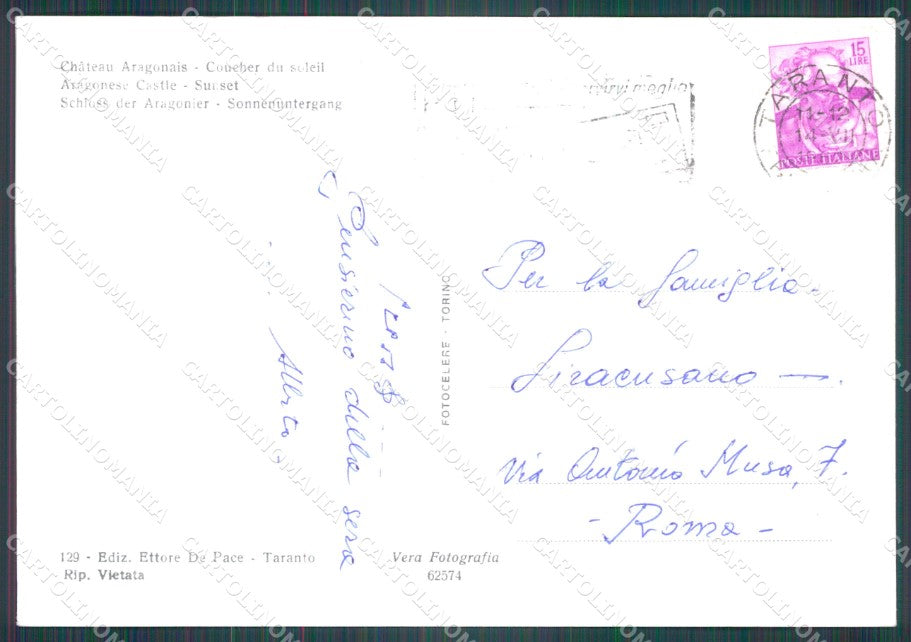 Château Aragonais - Coucher du soleil
Aragonese Castle - Sunset
Schloss der Aragonier - Sonnenuntergang
servirvi meglio
15
LIRE
TARANTO
11-12
14-VII
POSTE ITALIANE
Pensierino della sera
Alberto
FOTOCELERE - TORINO
Per la famiglia
Siracusano —.
Via Antonio Musa, 7.
- Roma -
129 - Ediz. Ettore De Pace - Taranto
Rip. Vietata
Vera Fotografia
62574
CARTOLINOMANIA